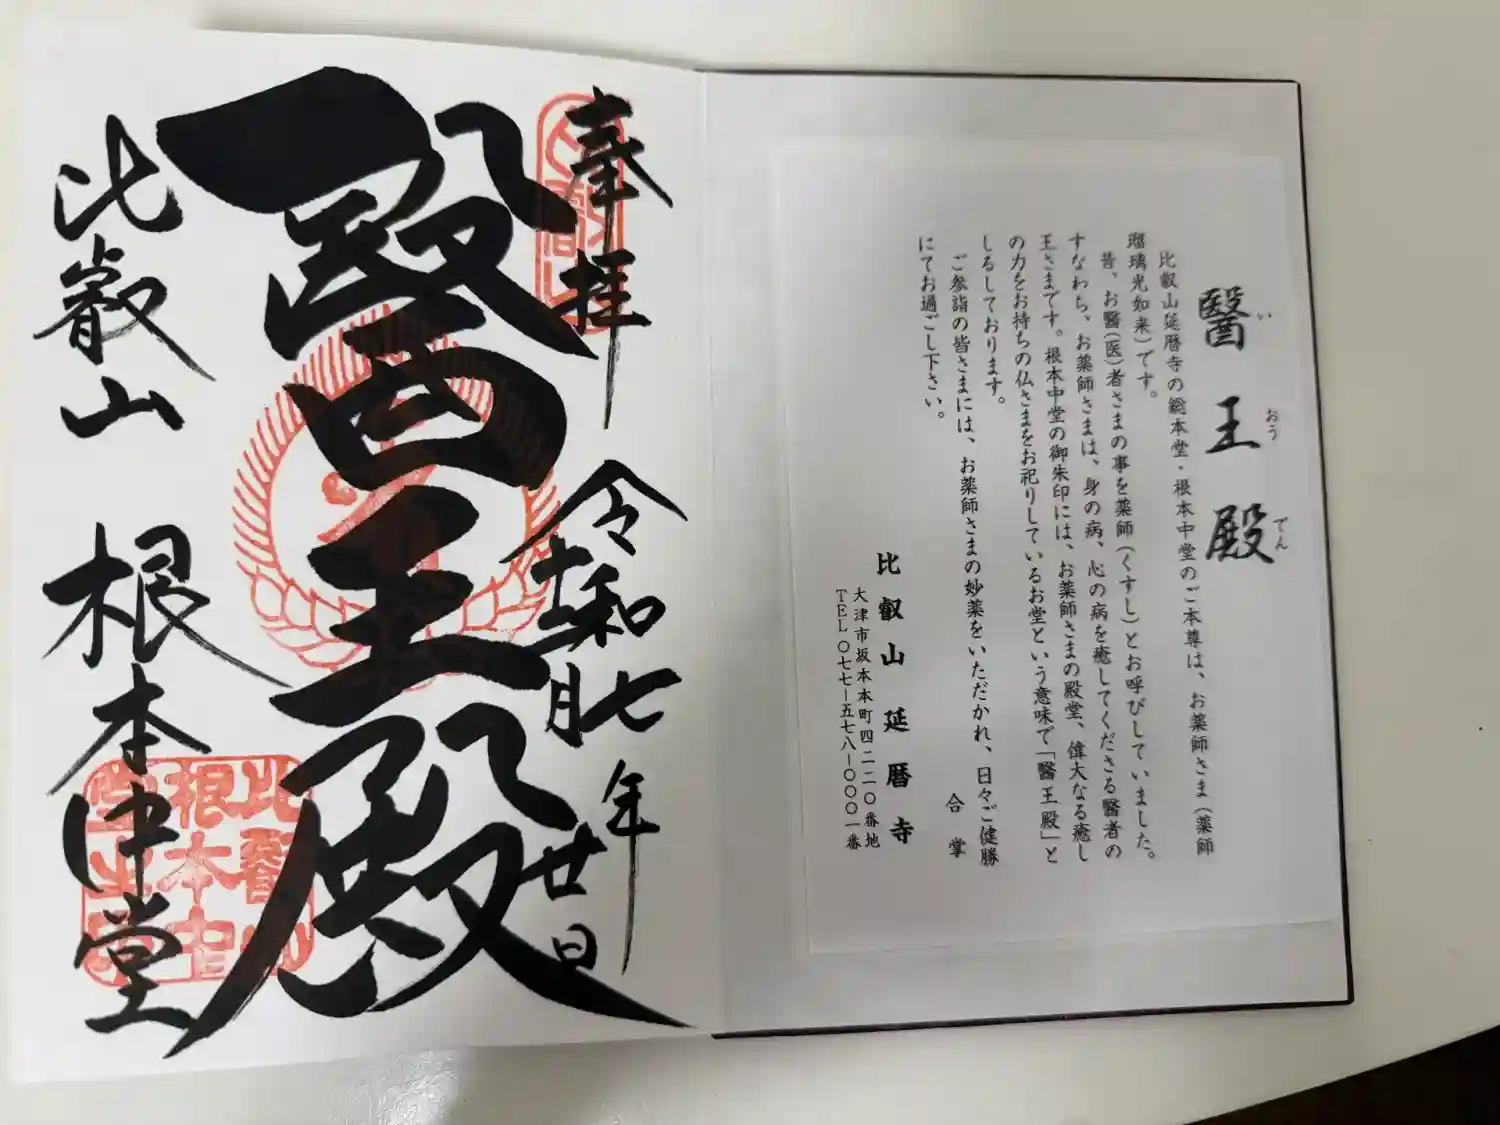 醫王殿
い おう でん
比叡山延暦寺の総本堂・根本中堂のご本尊は、お薬師さま(薬師
瑠璃光如来)です。
昔、お醫(医)者さまの事を薬師(くすし)とお呼びしていました。
すなわち、お薬師さまは、身の病、心の病を癒してくださる醫者の
王さまです。根本中堂の御朱印には、お薬師さまの殿堂、偉大なる癒し
の力をお持ちの仏さまをお祀りしているお堂という意味で「醫王殿」と
しるしております。
ご参詣の皆さまには、お薬師さまの妙薬をいただかれ、日々ご健勝
にてお過ごし下さい。
合掌
比叡山延暦寺
大津市坂本本町四二二〇番地
TEL〇七七-五七八-〇〇〇一番
奉拝
令和七年
月廿日
醫王殿
比叡山 根本中堂
比叡山
根本中
堂之印